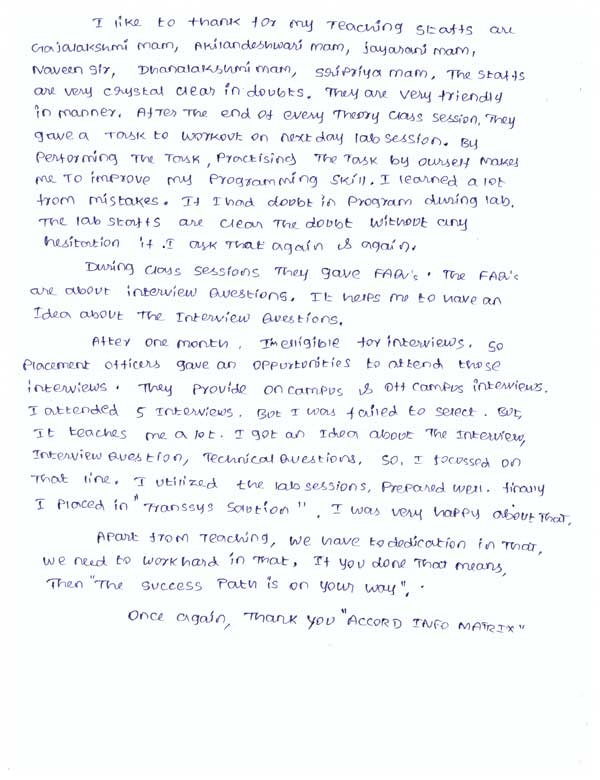 I like to thank for my Teaching Staffs are
Gajalakshmi mam, Akilandeshwari mam, jayarani mam,
Naveen Sir, Dhanalakshmi mam, Sripriya mam, The Staffs
are very crystal clear in doubts. They are very friendly
in manner. After The end of every Theory class session, They
gave a Task to workout on next day lab session. By
Performing The Task, Practising The Task by ourself makes
me To improve my Programming Skill. I learned a lot
from mistakes. If I had doubt in Program during lab.
The lab Staffs are clear The doubt without any
hesitation if I ask That again & again.
During class sessions They gave FAQ's. The FAQ's
are about interview Questions. It helps me to have an
Idea about The Interview Questions.
After one month, I'm eligible for interviews. So
Placement officers gave an opportunities to attend those
interviews. They Provide on campus & Off campus interviews.
I attended 5 Interviews. But I was failed to select. But,
It teaches me a lot. I got an Idea about The Interview,
Interview Question, Technical Questions. So, I focussed on
That line. I utilized the lab sessions, Prepared well. finally
I Placed in "Transsys Solution". I was very happy about That.
Apart from Teaching, we have to dedication in That,
we need to work hard in That, If you done That means,
Then "The success Path is on your way".
Once again, Thank you "ACCORD INFO MATRIX"